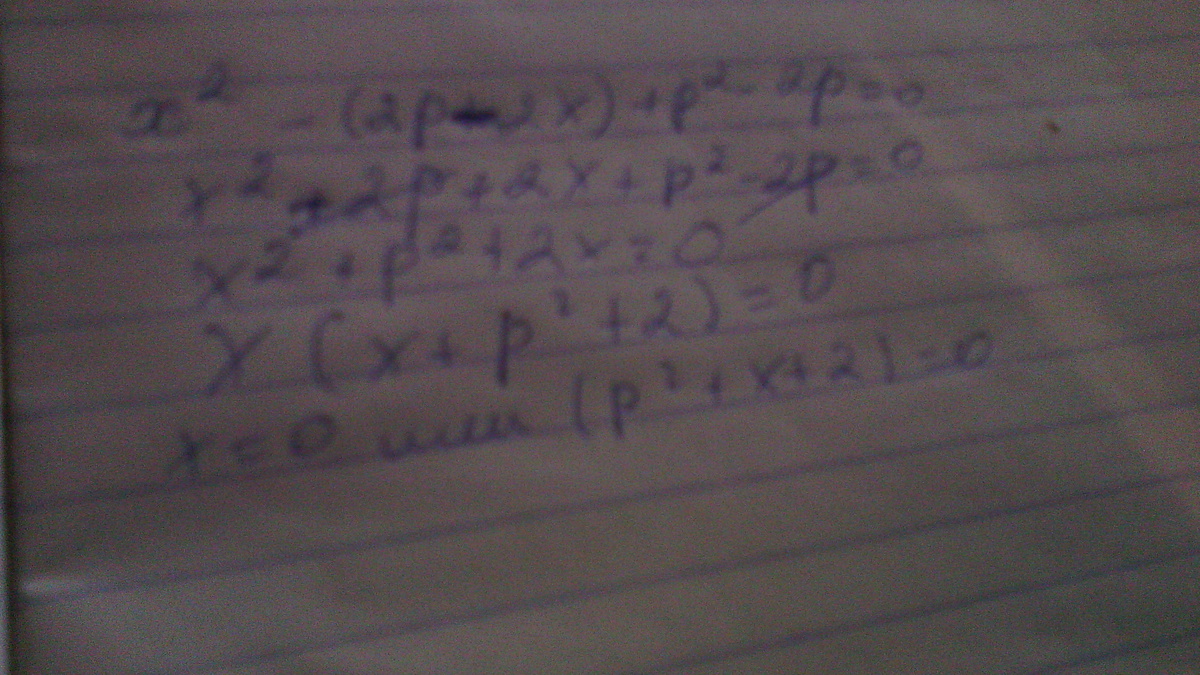 x² - (2p-2x)+p²-2p=0
x²+2p+2x+p²-2p=0
x²+p²+2x=0
x(x+p²+2)=0
x=0 или (p²+x+2)=0